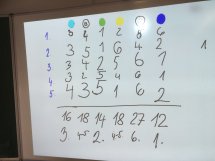 1. 3 4 1 2 6 5
2. 3 5 1 6 4 2
3. 3 4 2 5 6 1
4. 3 2 5 4 6 1
5. 4 3 5 1 6 2
16 18 14 18 27 12
3. 4.5 2. 4.5 6. 1.